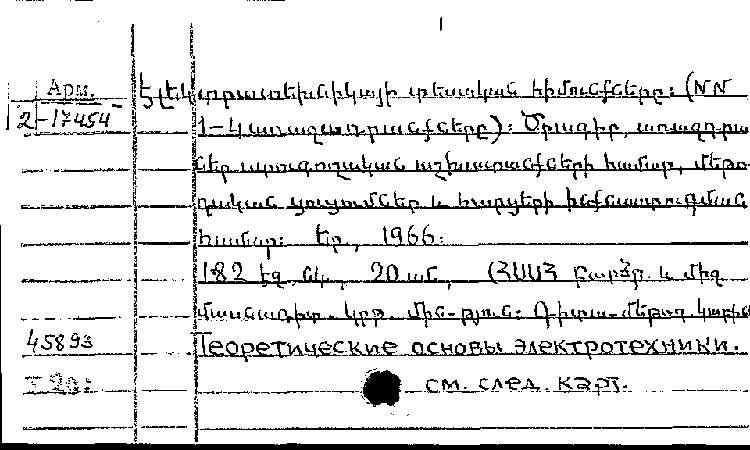 Арм.
2-17454
Էլեկտրատեխնիկայի տեսական հիմունքները: (NN
1-4 առաջադրանքները): Ծրագիր, առաջադրա
ներ ստուգողական աշխատանքների համար, մեթո-
դական ցուցումներ և հարցերի ինքնաստուգման
համար: Եր., 1966:
182 էջ. նկ., 20 սմ, (ՀՍՍՀ բարձր. և միջ
մասնագիտ. կրթ. մին-թյուն: Գիտա-մեթոդ կաբին
45893
Теоретические основы электротехники.
см. след. карт.